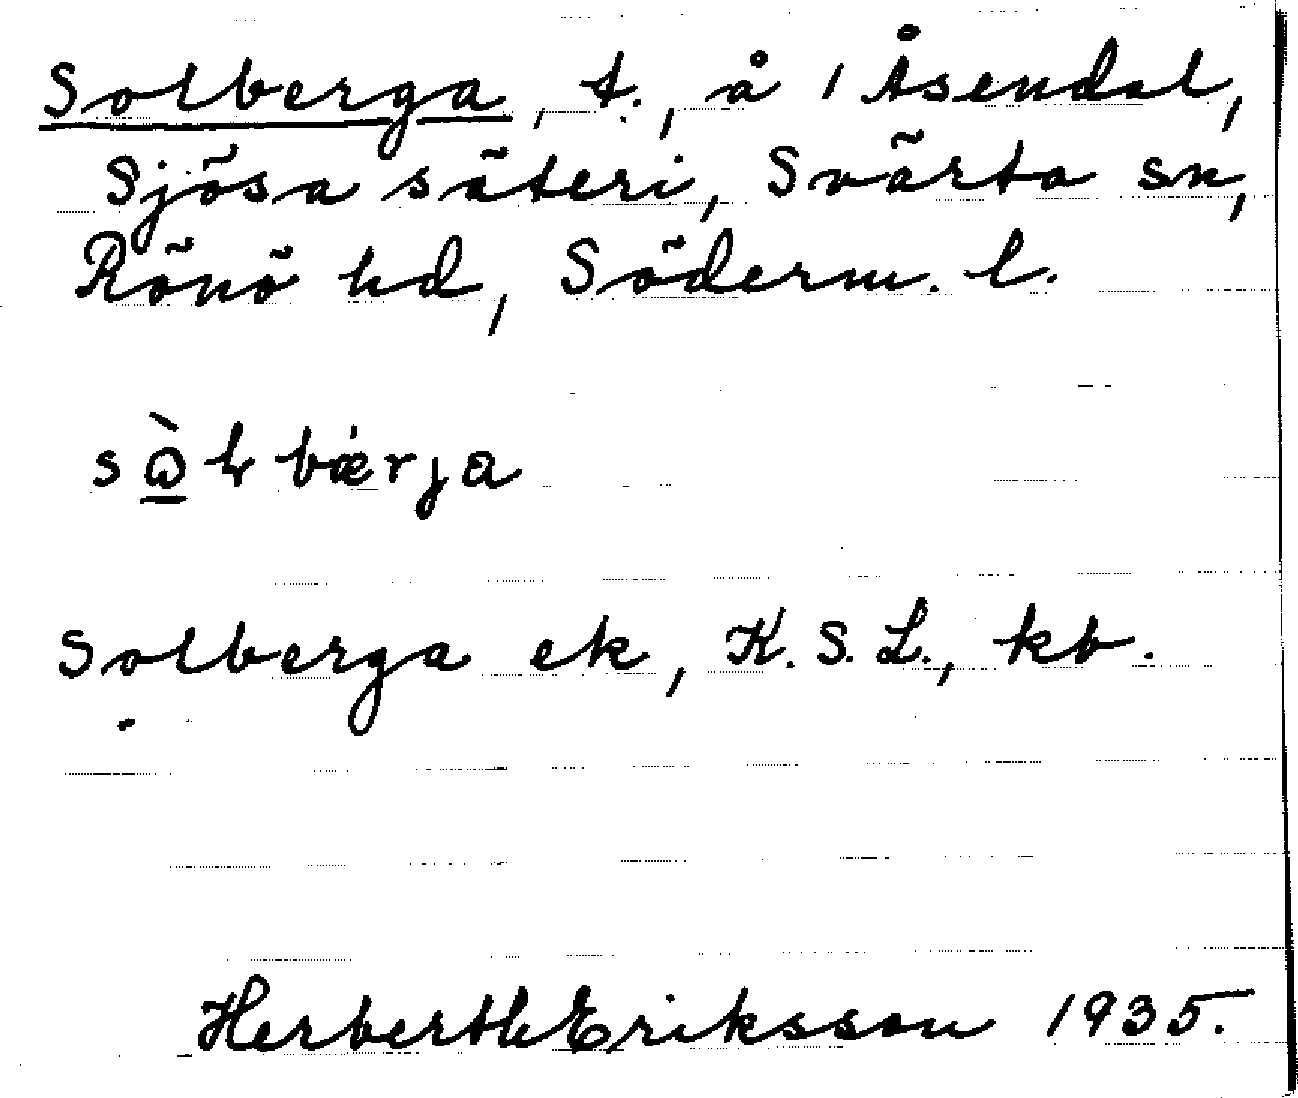 Solberga, t., å 1 Åsendal,
Sjösa säteri, Svärta sn,
Rönö hd, Söderm. l.
Solberga ek, K. S. L., kb.
Herberth Eriksson 1935.